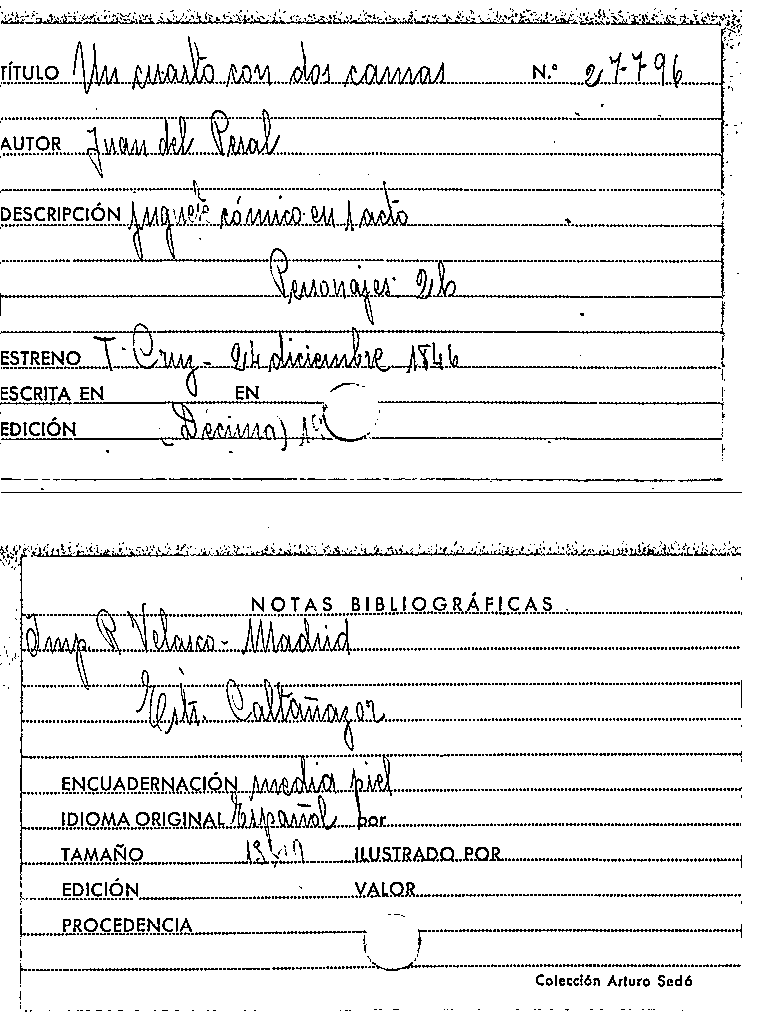 TÍTULO Un cuarto con dos camas N.º 27796
AUTOR Juan del Peral
DESCRIPCIÓN juguete cómico en 1 acto
Personajes 2h
ESTRENO T. Cruz - 24 diciembre 1846
ESCRITA EN EN
EDICIÓN (Décima)
NOTAS BIBLIOGRÁFICAS
Imp. R Velasco - Madrid
Estr. Caltañazor
ENCUADERNACIÓN media piel
IDIOMA ORIGINAL Español por
TAMAÑO ILUSTRADO POR
EDICIÓN VALOR
PROCEDENCIA
Colección Arturo Sedó